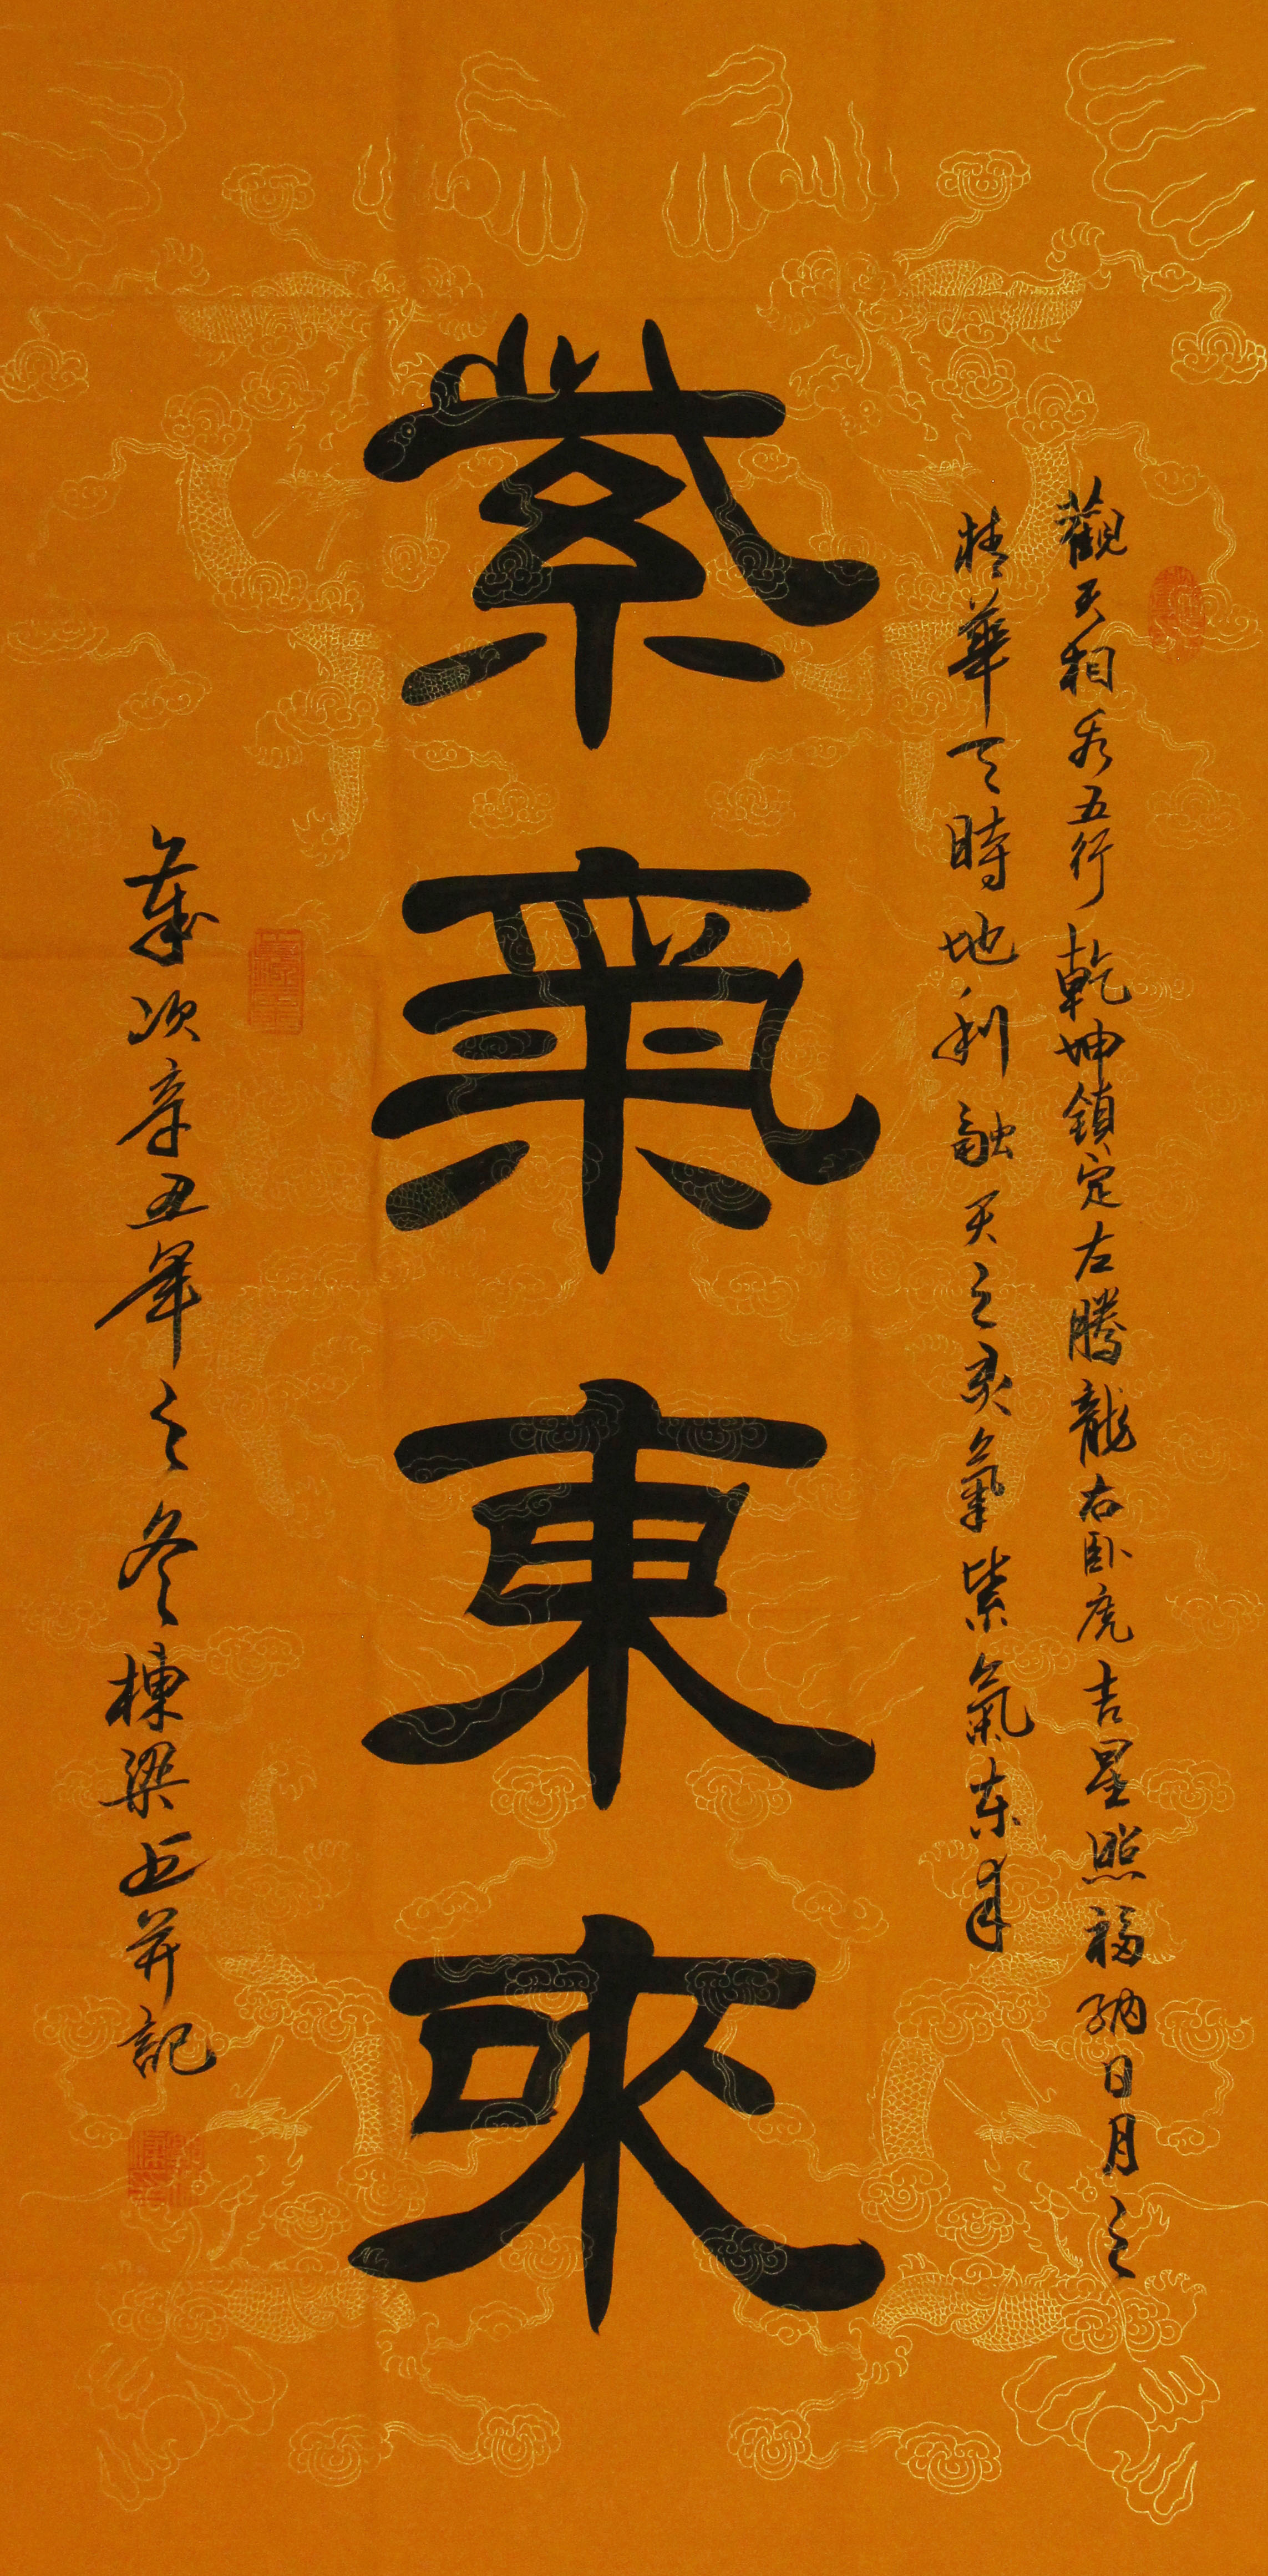 觀天相看五行乾坤鎖定左騰龍右卧虎吉星照福納日月之
精華天時地利融天之灵氣紫氣东来
紫氣東來
歲次辛丑年之冬棟梁書并記